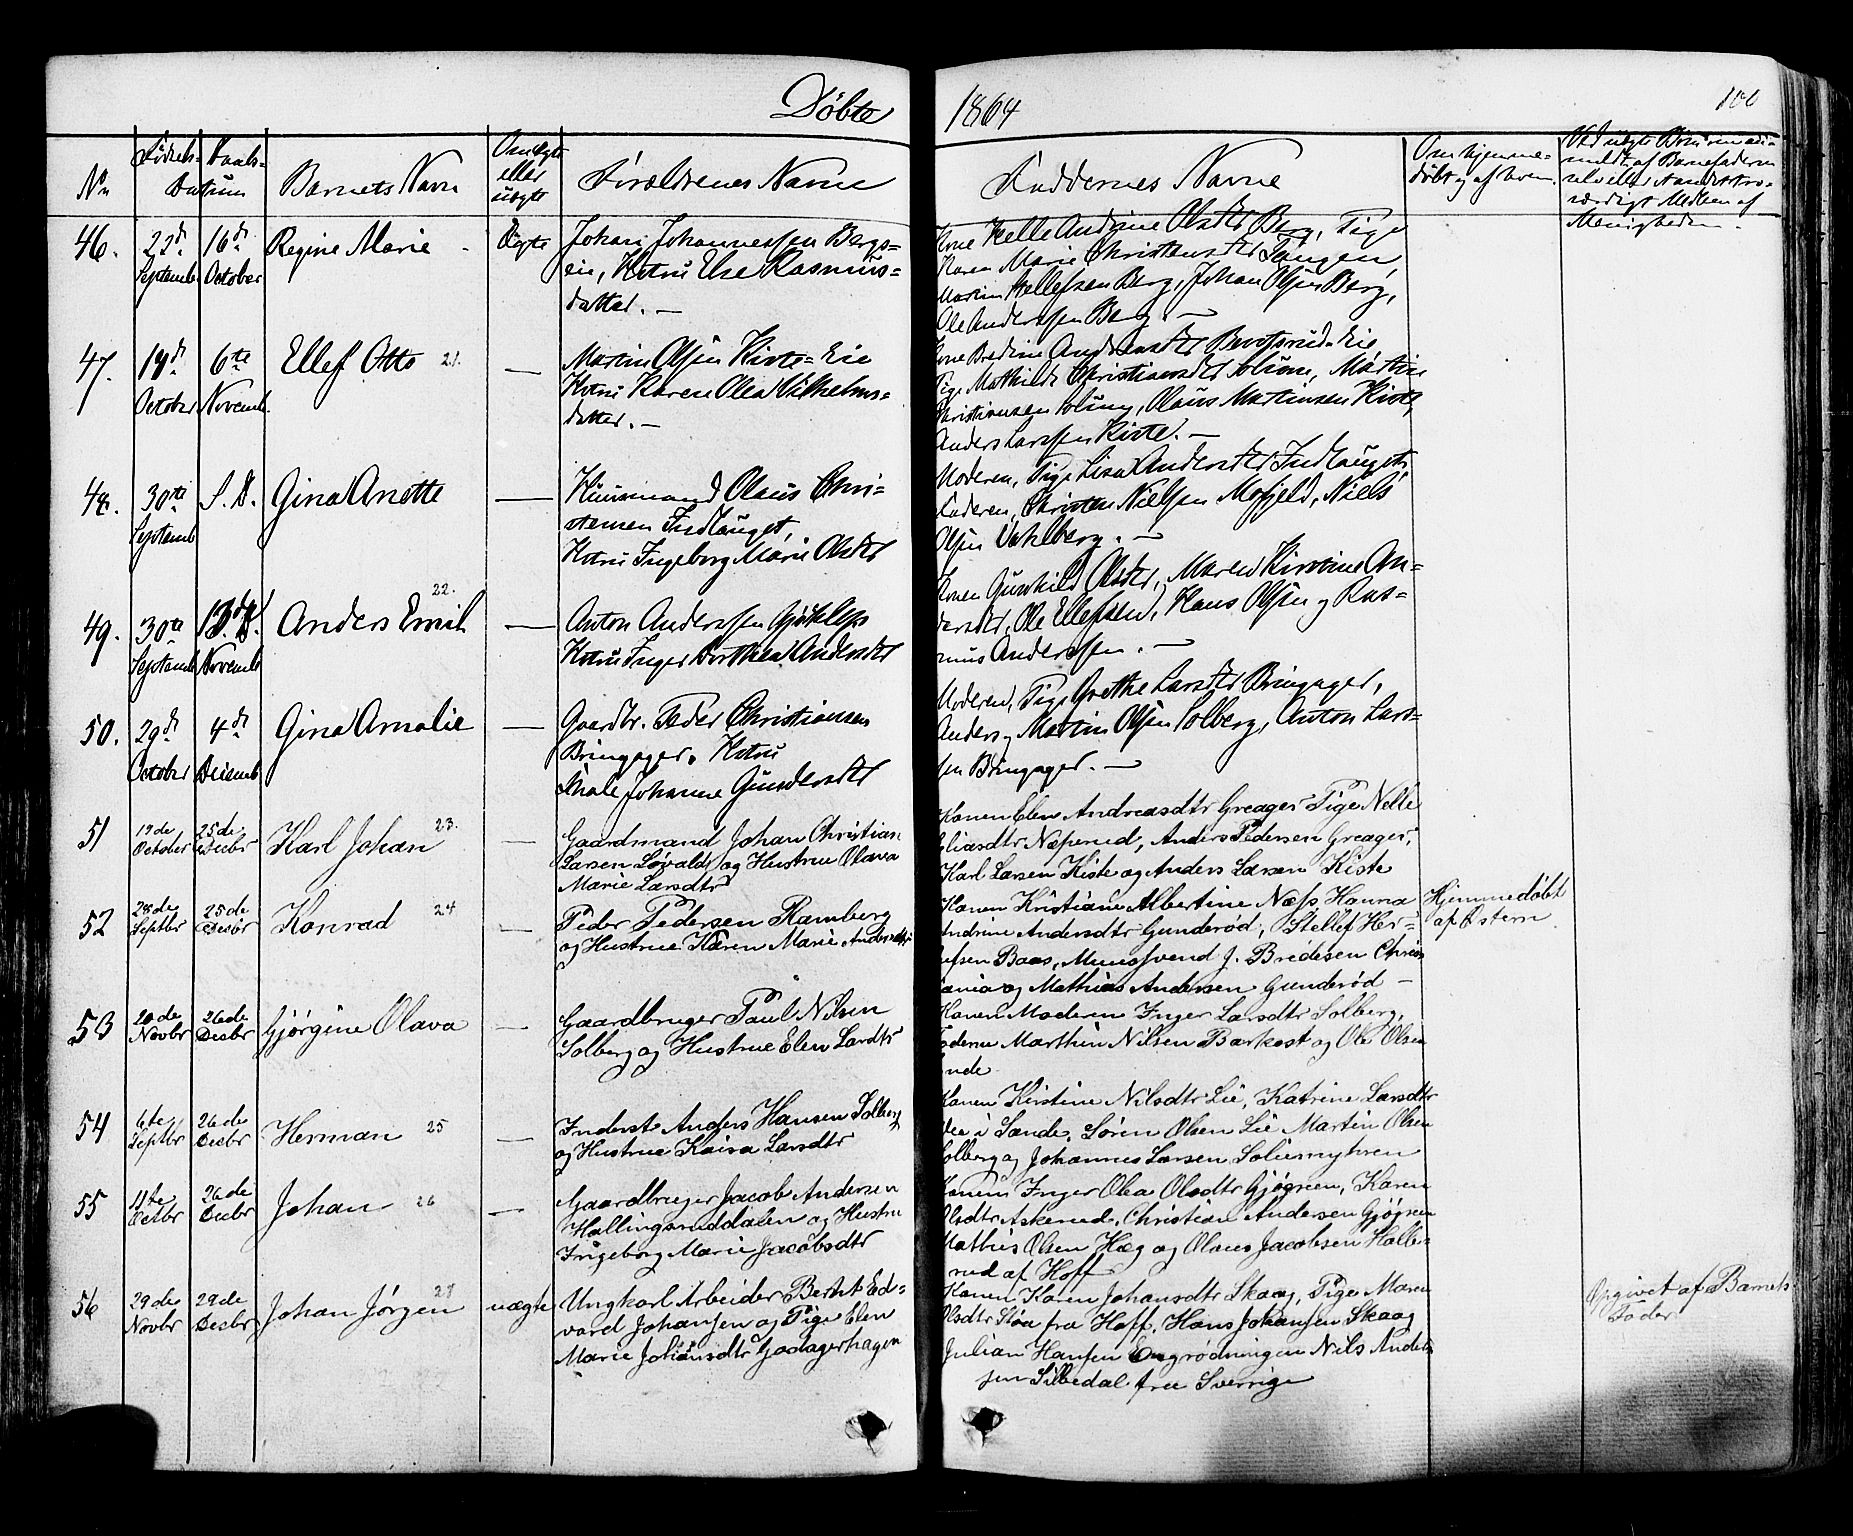 Døbte
1864
100
No
Fødsels-
Daabs-
Datum
Barnets Navn
Om ægte
eller
uægte
Forældrenes Navne
Faddernes Navne
Om hjemme-
døbt og af hvem
Ved uægte Børn om an-
meldt af Barnefaderen
selv eller et andet tro-
værdigt Medlem af
Menigheden.
46.
22d
Septemb.
16d
October
Regine Marie
Ægte
Johan Johannessen Bergs-
eie, Hstru Else Rasmus-
datter. —
Kone Helle Andrine Olsdtr Berg, Pige
Karen Marie Christensdtr Tangen,
Martin Hellefsen Berg, Johan Olsen Berg,
Ole Anderssen Berg. —
47.
19d
October
6te
Novemb.
Ellef Otto 21.
—
Martin Olsen Kiste-Eie
Hstru Karen Olea Vilhelms-
datter. —
Kone Bredine Andreasdtr
Pige Mathilde Christiansdtr Martin
Christiansen Olaus Martinsen Kiste,
Anders Larssen Kiste. —
48.
30te
Septemb
S. D.
Gina Anette
—
Huusmand Olaus Chri-
stensen Indlauget,
Hstru Ingeborg Marie Olsdtr
Moderen, Pige Lisa Andersdtr Indlauget,
Faderen, Christen Nielsen Mofjeld, Niels
Olsen Vahlberg. —
49.
30te
Septemb
13d
Novemb
Anders Emil
22.
—
Anton Anderssen Gjøklep
Hstru Inger Dorthea Andersdtr
Konen Gunhild Olsdtr, Maren Kirstine An-
dersdtr, Ole Ellefsen, Hans Olsen og Ras-
mus Anderssen. —
50.
29d
October
4d
Decemb
Gina Amalie
—
Gaardbr. Peder Christiansen
Bringager. Hstru
Thale Johanne Gundersdtr
Moderen, Pige Grethe Larsdtr Bringager,
Anders og Martin Olsen Solberg, Anton Lars-
sen Bringager. —
51
19de
October
25de
Decbr
Karl Johan
23.
—
Gaardmand Johan Christian
Larsen Løvald og Hustrue Olava
Marie Larsdtr
Konen Elen Andreasdtr Greager Pige Nelle
Eliasdtr Næperud, Anders Pedersen Greager,
Karl Larsen Kiste og Anders Larsen Kiste
52
28de
Septbr
25de
Decbr
Konrad
24
—
Peder Pedersen Ramberg
og Hustrue Karen Marie Andersdtr
Konen Kristiane Albertine Næss Hanna
Andrine Andersdtr Gunderød, Stellef Her-
lufsen Baas, Svend J. Bredesen Christi-
ania og Mathias Andersen Gunderød —
Hjemmedøbt
af Østern
53
20de
Novbr
26de
Decbr
Gjørgine Olava
—
Gaardbruger Paul Nilsen
Solberg og Hustrue Elen Larsdtr
Konen Moderen Inger Larsdtr Solberg,
Faderen Marthin Nilsen Barkost og Ole Olsen
Sande
54
6te
Septbr
26de
Decbr
Herman
25
—
Inderst Anders Hansen Solberg
og Hustrue Kaisa Larsdtr
Konen Kirstine Nilsdtr Lie, Katrine Larsdtr
Lie i Sande, Søren Olsen Lie Martin Olsen
Solberg og Johannes Larsen Soliemyhren
55
11te
Octbr
26de
Decbr
Johan
26
—
Gaardbruger Jacob Andersen
Hallingsruddalen og Hustru
Ingeborg Marie Jacobsdtr
Konen Inger Olea Olsdtr Gjøgreen, Karen
Olsdtr Askerud, Christian Andersen Gjøgreen
Mathis Olsen Hæg og Olaus Jacobsen Halle-
rud af Hoff
56
29de
Novbr
29de
Decbr
Johan Jørgen
27
uægte
Ungkarl Arbeider Bernt Ed-
vard Johansen og Pige Elen
Marie Johansdtr Godagerhagen
Konen Karen Johansdtr Skaag, Pige Maren
Olsdtr Stoa fra Hoff, Hans Johansen Skaag
Julian Hansen Engrødningen Nils Ander-
sen Silbedal fra Sverrige
Opgivet af Barnets
Fader